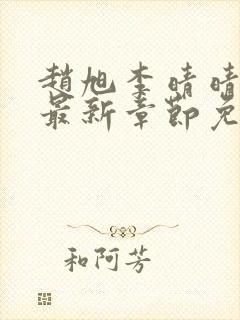 趙旭李晴晴
最新章節免
和阿芳